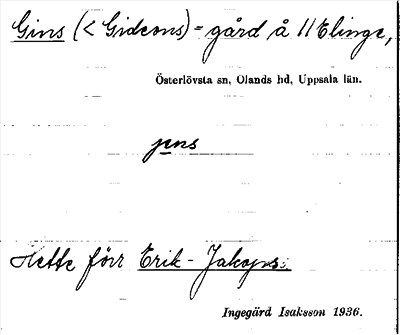 Gins (< Gideons) = gård å 11 Elinge,
Österlövsta sn, Olands hd, Uppsala län.
jens
Hette förr Erik - Jakops.
Ingegärd Isaksson 1936.